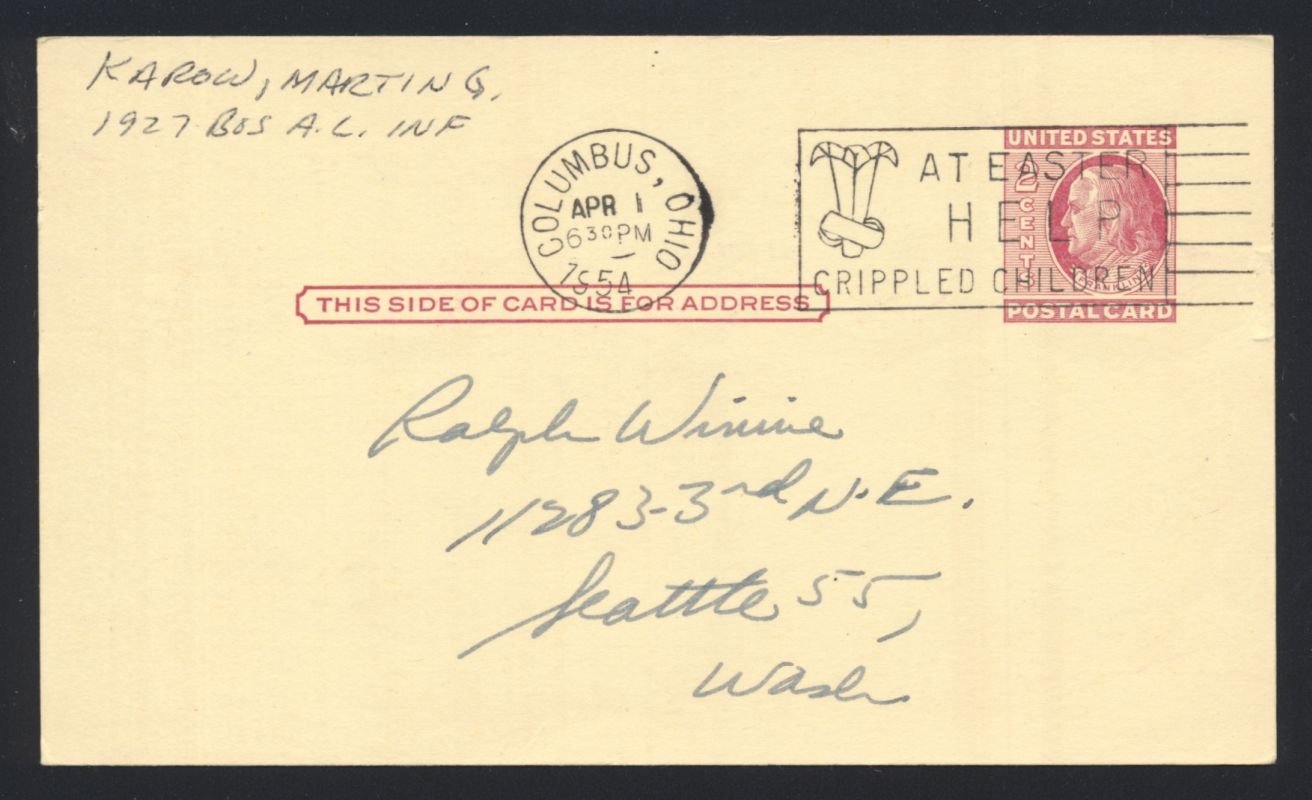 KAROW, MARTIN G.
1927 BOS A.L. INF
COLUMBUS, OHIO
APR 1
630PM
1954
AT EASTER
HELP
CRIPPLED CHILDREN
UNITED STATES
2 CENTS
FRANKLIN
POSTAL CARD
THIS SIDE OF CARD IS FOR ADDRESS
Ralph Winnie
11283-3rd N.E.
Seattle 55,
Wash